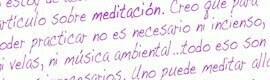 estoy de a
artículo sobre meditación. Creo que para
oder practicar no es necesario ni incienso,
i velas, ni música ambiental...todo eso son
Uno puede meditar all